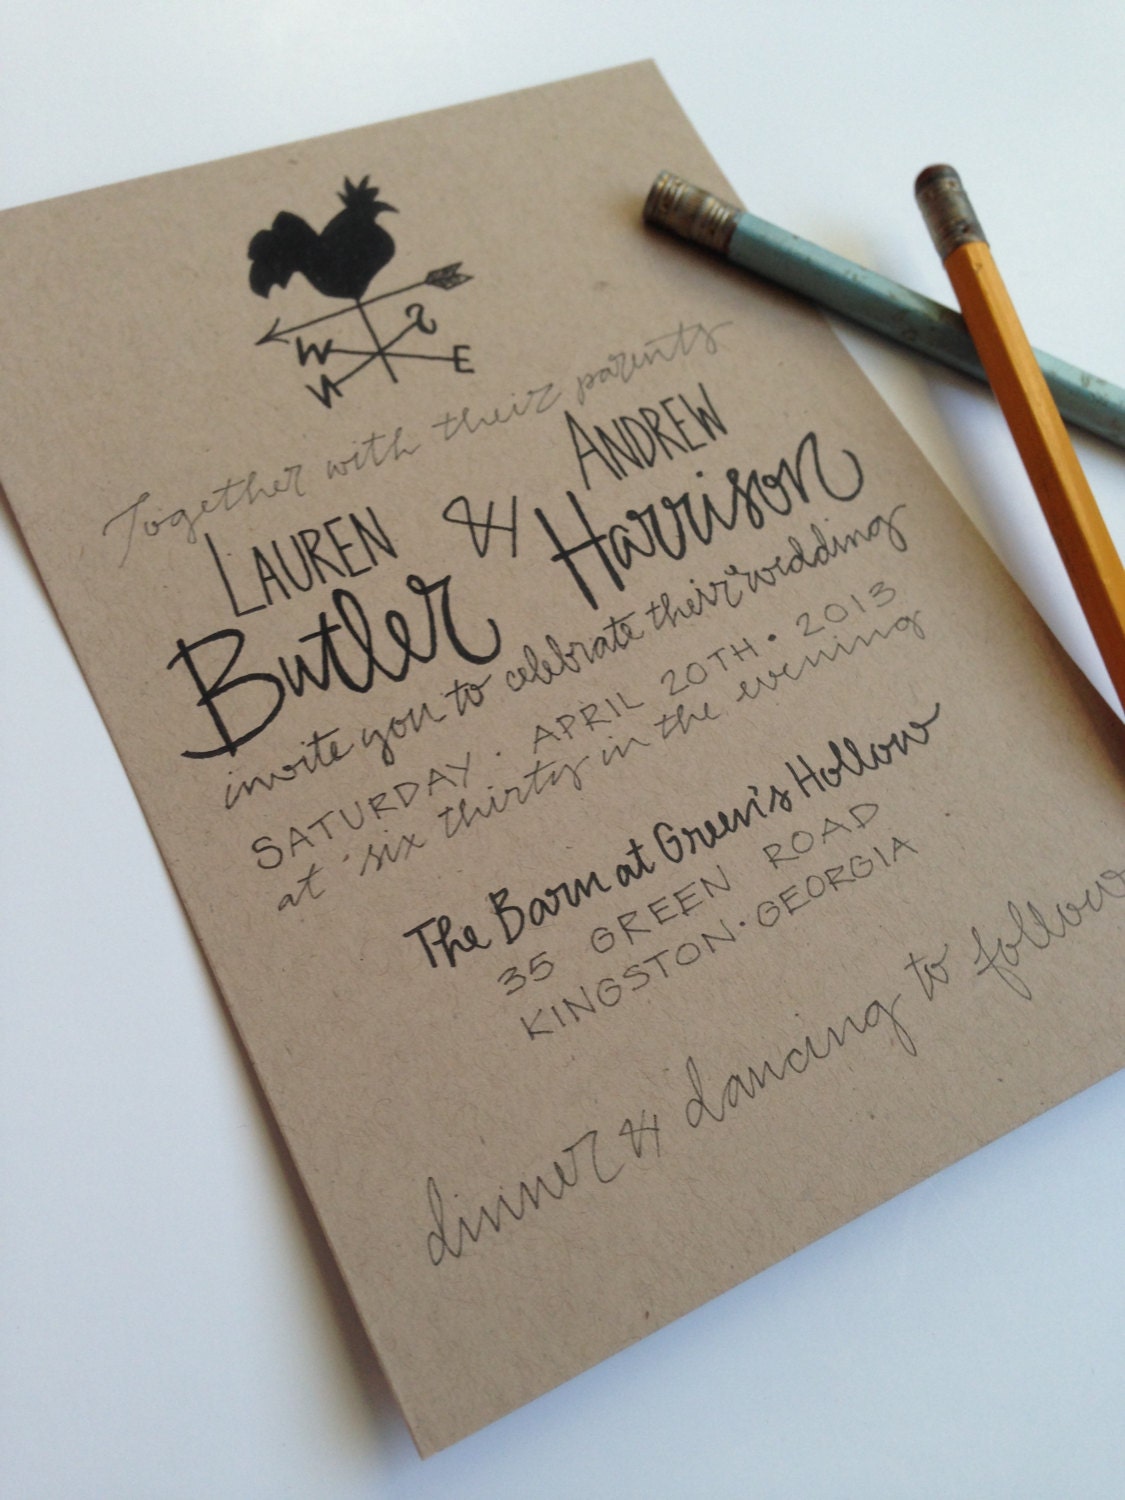 S
W E
N
Together with their parents
LAUREN & ANDREW
Butler Harrison
invite you to celebrate their wedding
SATURDAY · APRIL 20TH · 2013
at six thirty in the evening
The Barn at Green's Hollow
35 GREEN ROAD
KINGSTON · GEORGIA
dinner & dancing to follow